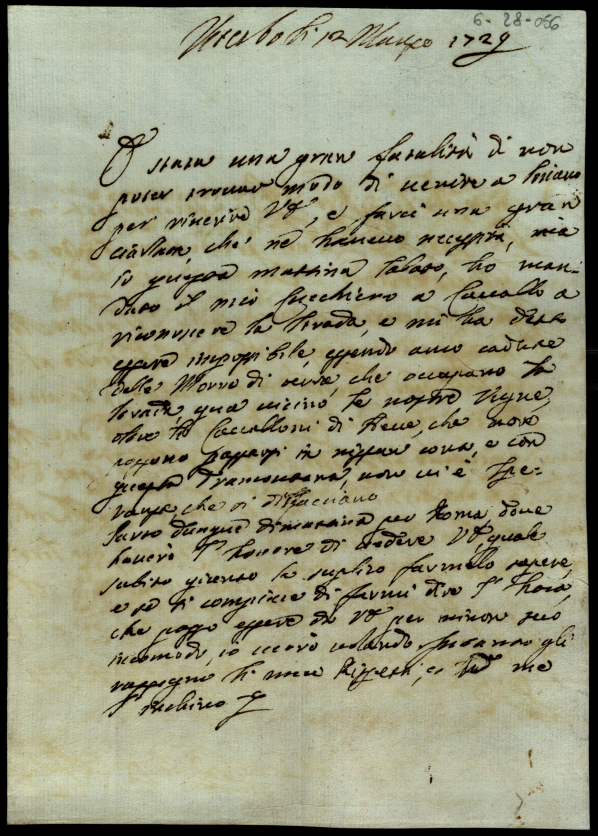 6-28-056
Viterbo li 12 Marzo 1729
È stata una gran fatalità di non
poter trovar modo di venire a
per riverire V.S., e farci una gran
ciarlata, che ne havevo necessità, ma
io questa mattina Sabato, ho man-
dato il mio Cucchiero a Cavallo a
riconoscere la strada, e mi ha detto
essere impossibile, essendo anco cadute
delle di terra, che occupano la
strada qua vicino le nostre Vigne,
oltre li Cavalloni di Neve, che non
possono passarsi in nissun conto, e con
questa Tramontana, non vi è spe-
ranza che si disfacciano
Sarò dunque dimattina per Roma, dove
haverò l'honore di vedere V.S., quale
subito giunto la supplico farmelo sapere,
e di farmi dire l'hora,
che posso essere da V.S. per minor suo
incomodo, io verò volando, fratanto gli
rassegno li miei Rispetti, e me
inchino